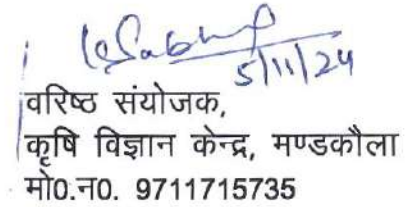 5/11/24
वरिष्ठ संयोजक,
कृषि विज्ञान केन्द्र, मण्डकौला
मो0.न0. 9711715735